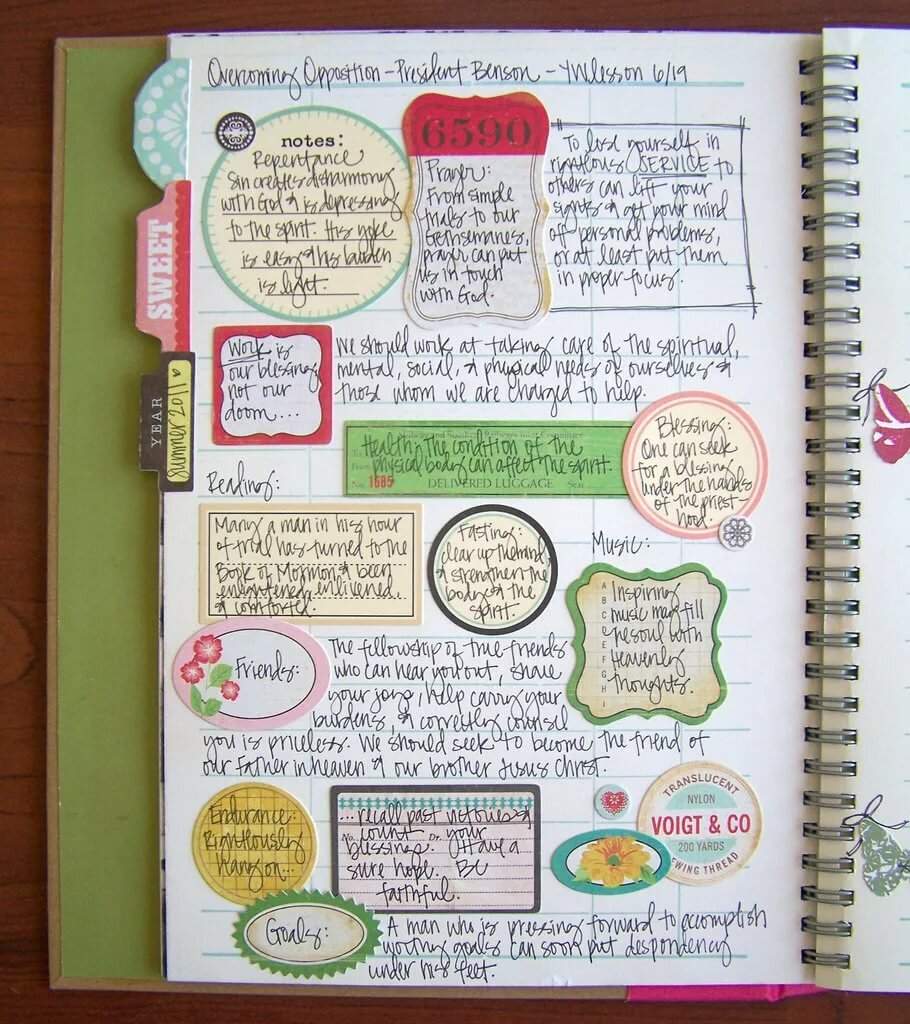 Overcoming Opposition - President Benson - YW lesson 6/19
notes:
Repentance
Sin creates disharmony
with God & is depressing
to the spirit. His yoke
is easy & his burden
is light.
6590
Prayer:
From simple
trials to our
Gethsemanes,
prayer can put
us in touch
with God.
To lose yourself in
righteous SERVICE to
others can lift your
sights & get your mind
off personal problems,
or at least put them
in proper focus.
SWEET
YEAR
summer 2011
Work is
our blessing
not our
doom...
We should work at taking care of the spiritual,
mental, social, & physical needs of ourselves &
those whom we are charged to help.
Health: the condition of the
physical body can affect the spirit.
No. 1685 DELIVERED LUGGAGE
Blessing:
One can seek
for a blessing
under the hands
of the priest-
hood.
Reading:
Many a man in his hour
of trial has turned to the
Book of Mormon & been
enlightened, enlivened
& comforted.
Fasting:
clear up the mind
& strengthen the
body & the
spirit.
Music:
A B C D E F G H I
Inspiring
music may fill
the soul with
heavenly
thoughts.
Friends:
The fellowship of true friends
who can hear you out, share
your joys, help carry your
burdens, & correctly counsel
you is priceless. We should seek to become the friend of
our Father in heaven & our brother Jesus Christ.
Endurance:
Righteously
Hang on...
...recall past victories &
count your
blessings. Have a
sure hope. BE
faithful.
TRANSLUCENT
NYLON
VOIGT & CO
200 YARDS
SEWING THREAD
Goals:
A man who is pressing forward to accomplish
worthy goals can soon put despondency
under his feet.